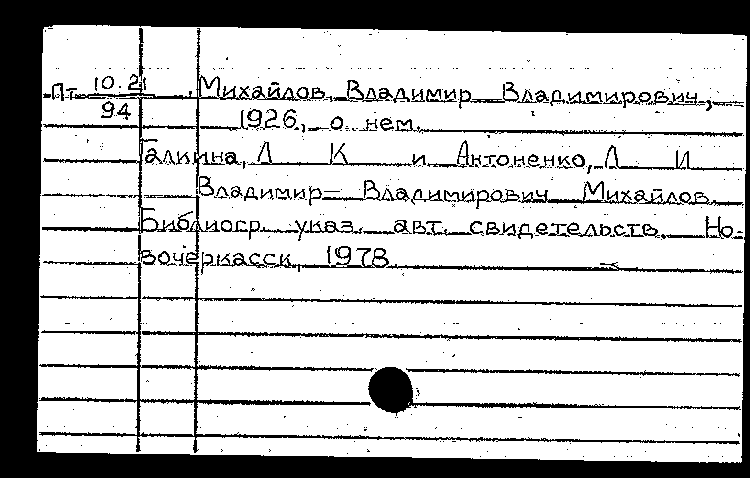 Пт 10.21 Михайлов, Владимир Владимирович,
94 1926, о нем.
Галкина, Л К и Антоненко, Л И
Владимир Владимирович Михайлов.
Библиогр. указ. авт. свидетельств. Но-
вочеркасск, 1978.